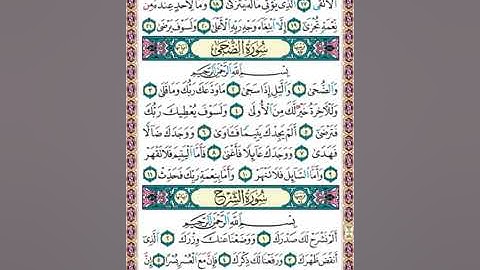 الْأَتْقَى ١٧ الَّذِي يُؤْتِي مَالَهُ يَتَزَكَّى ١٨ وَمَا لِأَحَدٍ عِندَهُ مِن
نِّعْمَةٍ تُجْزَى ١٩ إِلَّا ابْتِغَاءَ وَجْهِ رَبِّهِ الْأَعْلَى ٢٠ وَلَسَوْفَ يَرْضَى ٢١
سُورَةُ الضُّحَى
بِسْمِ اللَّهِ الرَّحْمَنِ الرَّحِيمِ
وَالضُّحَى ١ وَاللَّيْلِ إِذَا سَجَى ٢ مَا وَدَّعَكَ رَبُّكَ وَمَا قَلَى ٣
وَلَلْآخِرَةُ خَيْرٌ لَّكَ مِنَ الْأُولَى ٤ وَلَسَوْفَ يُعْطِيكَ رَبُّكَ
فَتَرْضَى ٥ أَلَمْ يَجِدْكَ يَتِيمًا فَآوَى ٦ وَوَجَدَكَ ضَالًّا
فَهَدَى ٧ وَوَجَدَكَ عَائِلًا فَأَغْنَى ٨ فَأَمَّا الْيَتِيمَ فَلَا تَقْهَرْ
٩ وَأَمَّا السَّائِلَ فَلَا تَنْهَرْ ١٠ وَأَمَّا بِنِعْمَةِ رَبِّكَ فَحَدِّثْ ١١
سُورَةُ الشَّرْحِ
بِسْمِ اللَّهِ الرَّحْمَنِ الرَّحِيمِ
أَلَمْ نَشْرَحْ لَكَ صَدْرَكَ ١ وَوَضَعْنَا عَنكَ وِزْرَكَ ٢ الَّذِي
أَنقَضَ ظَهْرَكَ ٣ وَرَفَعْنَا لَكَ ذِكْرَكَ ٤ فَإِنَّ مَعَ الْعُسْرِ يُسْرًا ٥ إِنَّ